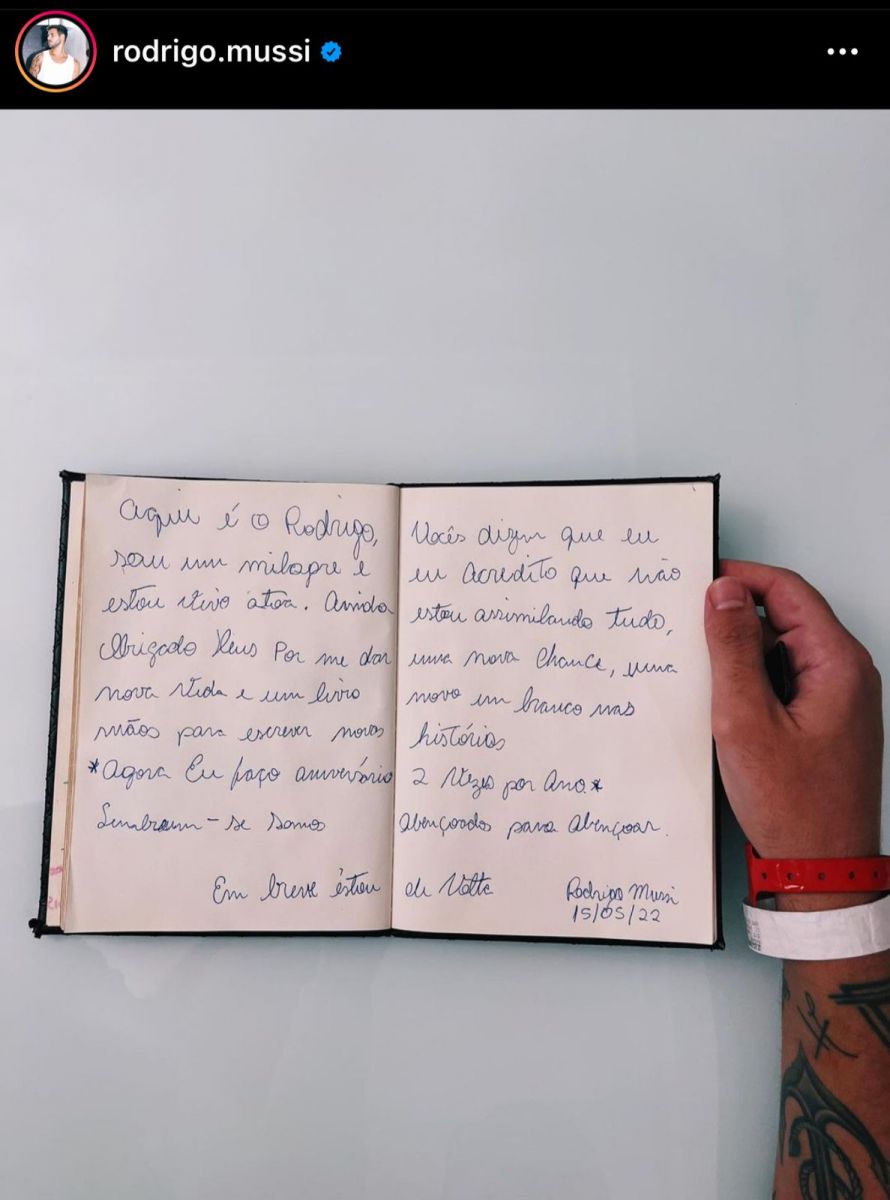 rodrigo.mussi
Aqui é o Rodrigo, Vocês dizem que eu
sou um milagre e eu Acredito que não
estou vivo atoa. Ainda estou assimilando tudo,
Obrigado Deus Por me dar uma nova chance, uma
nova vida e um livro novo em branco nas
mãos para escrever novas histórias
*Agora Eu faço aniversário 2 Vezes por Ano.*
Lembram-se Somos Abençoados para Abençoar.
Em breve éstou de Volta
Rodrigo Mussi
15/05/22